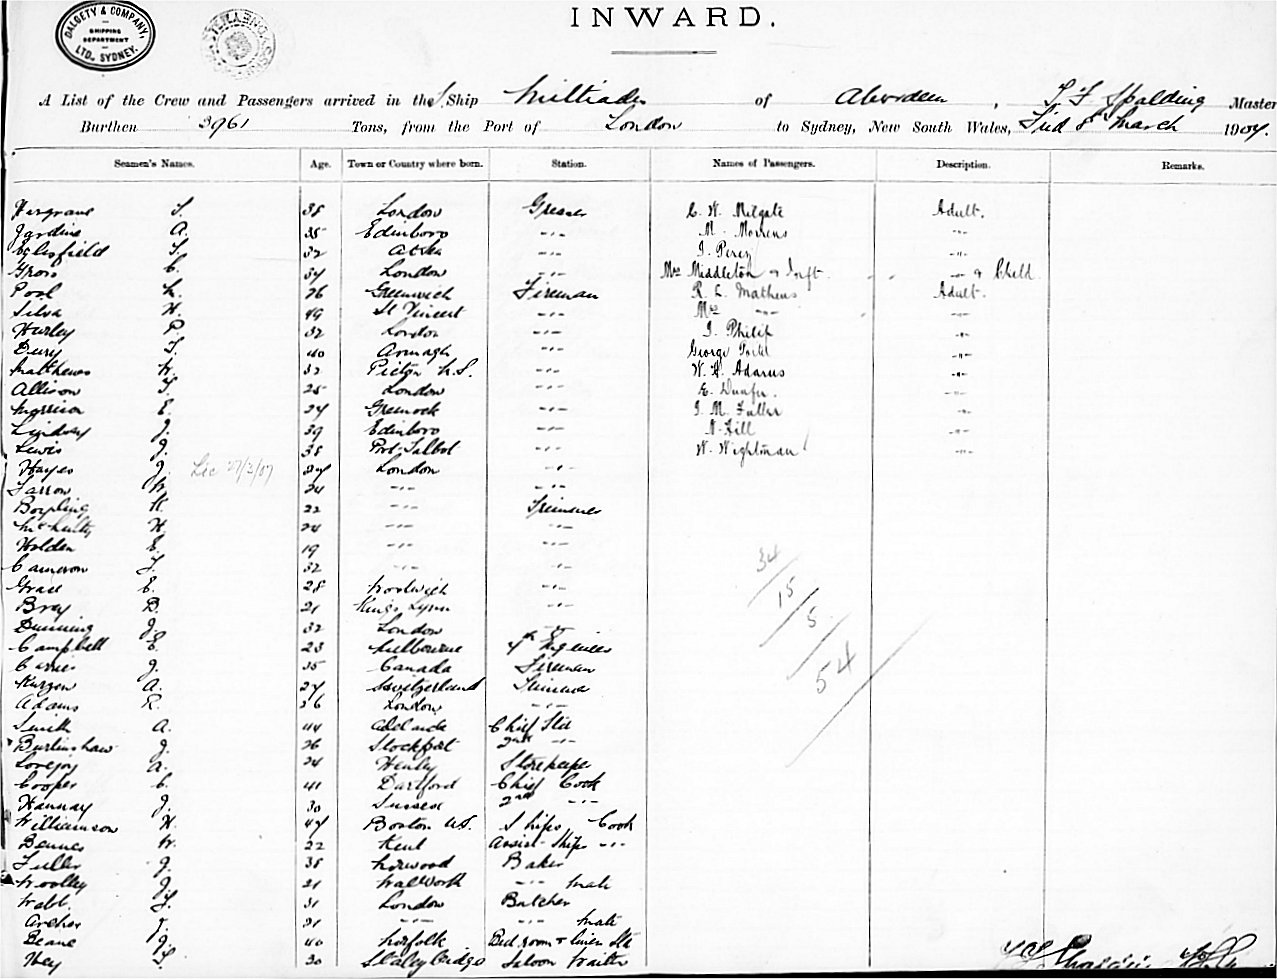 DALGETY & COMPANY, LTD., SYDNEY.
SHIPPING DEPARTMENT
INWARD.
A List of the Crew and Passengers arrived in the Ship Miltiades of Aberdeen, Spalding Master
Burthen 3961 Tons, from the Port of London to Sydney, New South Wales, March 1904.
Seamen's Names. Age. Town or Country where born. Station. Names of Passengers. Description. Remarks.
Hargrave 38 London Greaser C. W. Milgate Adult.
Jardine A. 35 Edinboro -"- M. -"-
Eglesfield 32 At Sea -"- J. Percy -"-
Gross C. 34 London -"- Mrs Middleton & Inft. -"- & Child
Pool 26 Greenwich Fireman R. L. Mathews Adult.
Silva H. 49 St Vincent -"- Mrs -"- -"-
Hurley P. 32 London -"- J. Philip -"-
Dury 40 Armagh -"- George -"-
Matthews W. 32 Picton N.S. -"- W. H. Adams -"-
Allison 25 London -"- E. -"-
Morrison E. 24 Greenock -"- J. M. Fuller -"-
Lindsay J. 39 Edinboro -"- N. Hill -"-
Lewis J. 38 Port Talbot -"- W. Wightman -"-
Hayes J. 27/2/07 London -"-
Farrow 24 -"- -"-
22 -"- Trimmer
H. 24 -"- -"-
Holden E. 19 -"- -"-
Cameron 32 -"- -"-
Grace E. 28 Woolwich -"-
Bray B. 21 Kings Lynn -"-
Dunning J. 32 London -"-
Campbell E. 23 Melbourne 4th Engineer
J. 35 Canada Fireman
A. 24 Switzerland Trimmer
Adams R. 26 London -"-
Smith A. 44 Adelaide Chief Std
Burlinshaw J. 26 Stockport 2nd -"-
Lovejoy A. 24 Henley Storekeeper
Cooper C. 41 Dartford Chief Cook
Hannay J. 30 Sussex 2nd -"-
Williamson H. 47 Boston U.S. Ships Cook
W. 22 Kent Assist Ships -"-
Fuller J. 38 Norwood Baker
Woolley J. 21 Walworth -"- Mate
Webb 31 London Butcher
Archer 21 -"- -"- Mate
Beane J. 40 Norfolk Bed room & Linen Std
Hey 30 Staleybridge Saloon Waiter
34
15
5
54